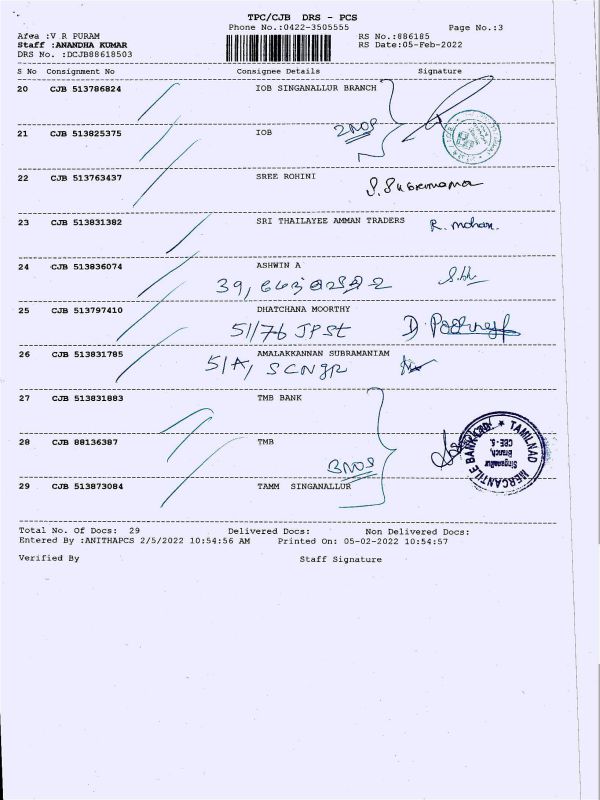 TPC/CJB DRS - PCS
Phone No.:0422-3505555
Page No.:3
Afea :V R PURAM
RS No.:886185
Staff :ANANDHA KUMAR
RS Date:05-Feb-2022
DRS No. :DCJB88618503
S No Consignment No Consignee Details Signature
20 CJB 513786824 IOB SINGANALLUR BRANCH
21 CJB 513825375 IOB 2NOS
22 CJB 513763437 SREE ROHINI
23 CJB 513831382 SRI THAILAYEE AMMAN TRADERS R. mohan.
24 CJB 513836074 ASHWIN A
39,
25 CJB 513797410 DHATCHANA MOORTHY
51/76 JPSt
26 CJB 513831785 AMALAKKANNAN SUBRAMANIAM
51A, SCNGR
27 CJB 513831883 TMB BANK
28 CJB 88136387 TMB
3NOS
29 CJB 513873084 TAMM SINGANALLUR
TAMILNAD MERCANTILE BANK LTD.
Singanallur
Branch,
CBE - 5.
Total No. Of Docs: 29 Delivered Docs: Non Delivered Docs:
Entered By :ANITHAPCS 2/5/2022 10:54:56 AM Printed On: 05-02-2022 10:54:57
Verified By Staff Signature